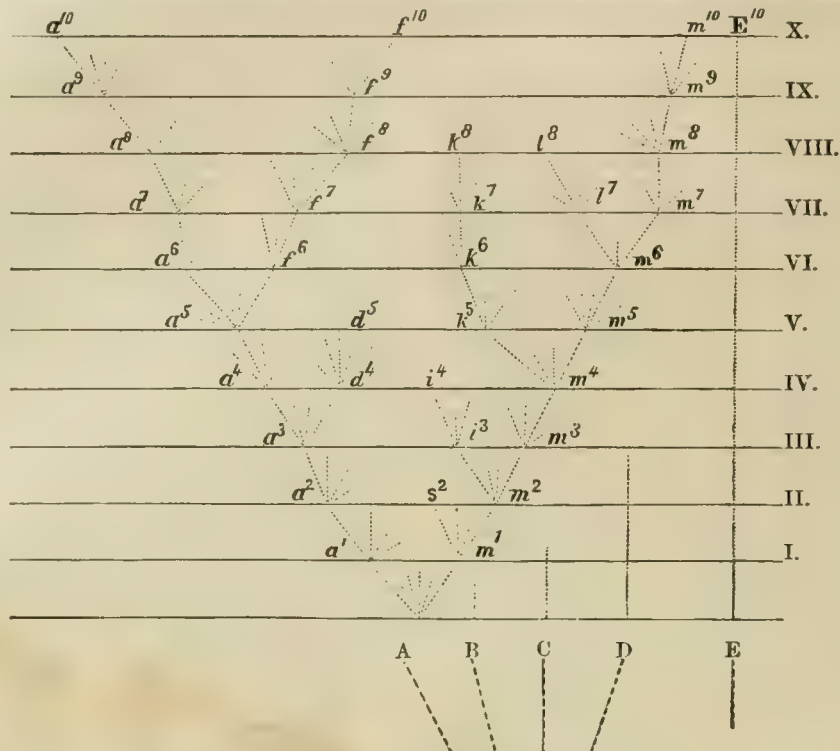 a¹⁰ f¹⁰ m¹⁰ E¹⁰ X.
a⁹ f⁹ m⁹ IX.
a⁸ f⁸ k⁸ l⁸ m⁸ VIII.
a⁷ f⁷ k⁷ l⁷ m⁷ VII.
a⁶ f⁶ k⁶ m⁶ VI.
a⁵ d⁵ k⁵ m⁵ V.
a⁴ d⁴ i⁴ m⁴ IV.
a³ i³ m³ III.
a² s² m² II.
a¹ m¹ I.
A B C D E